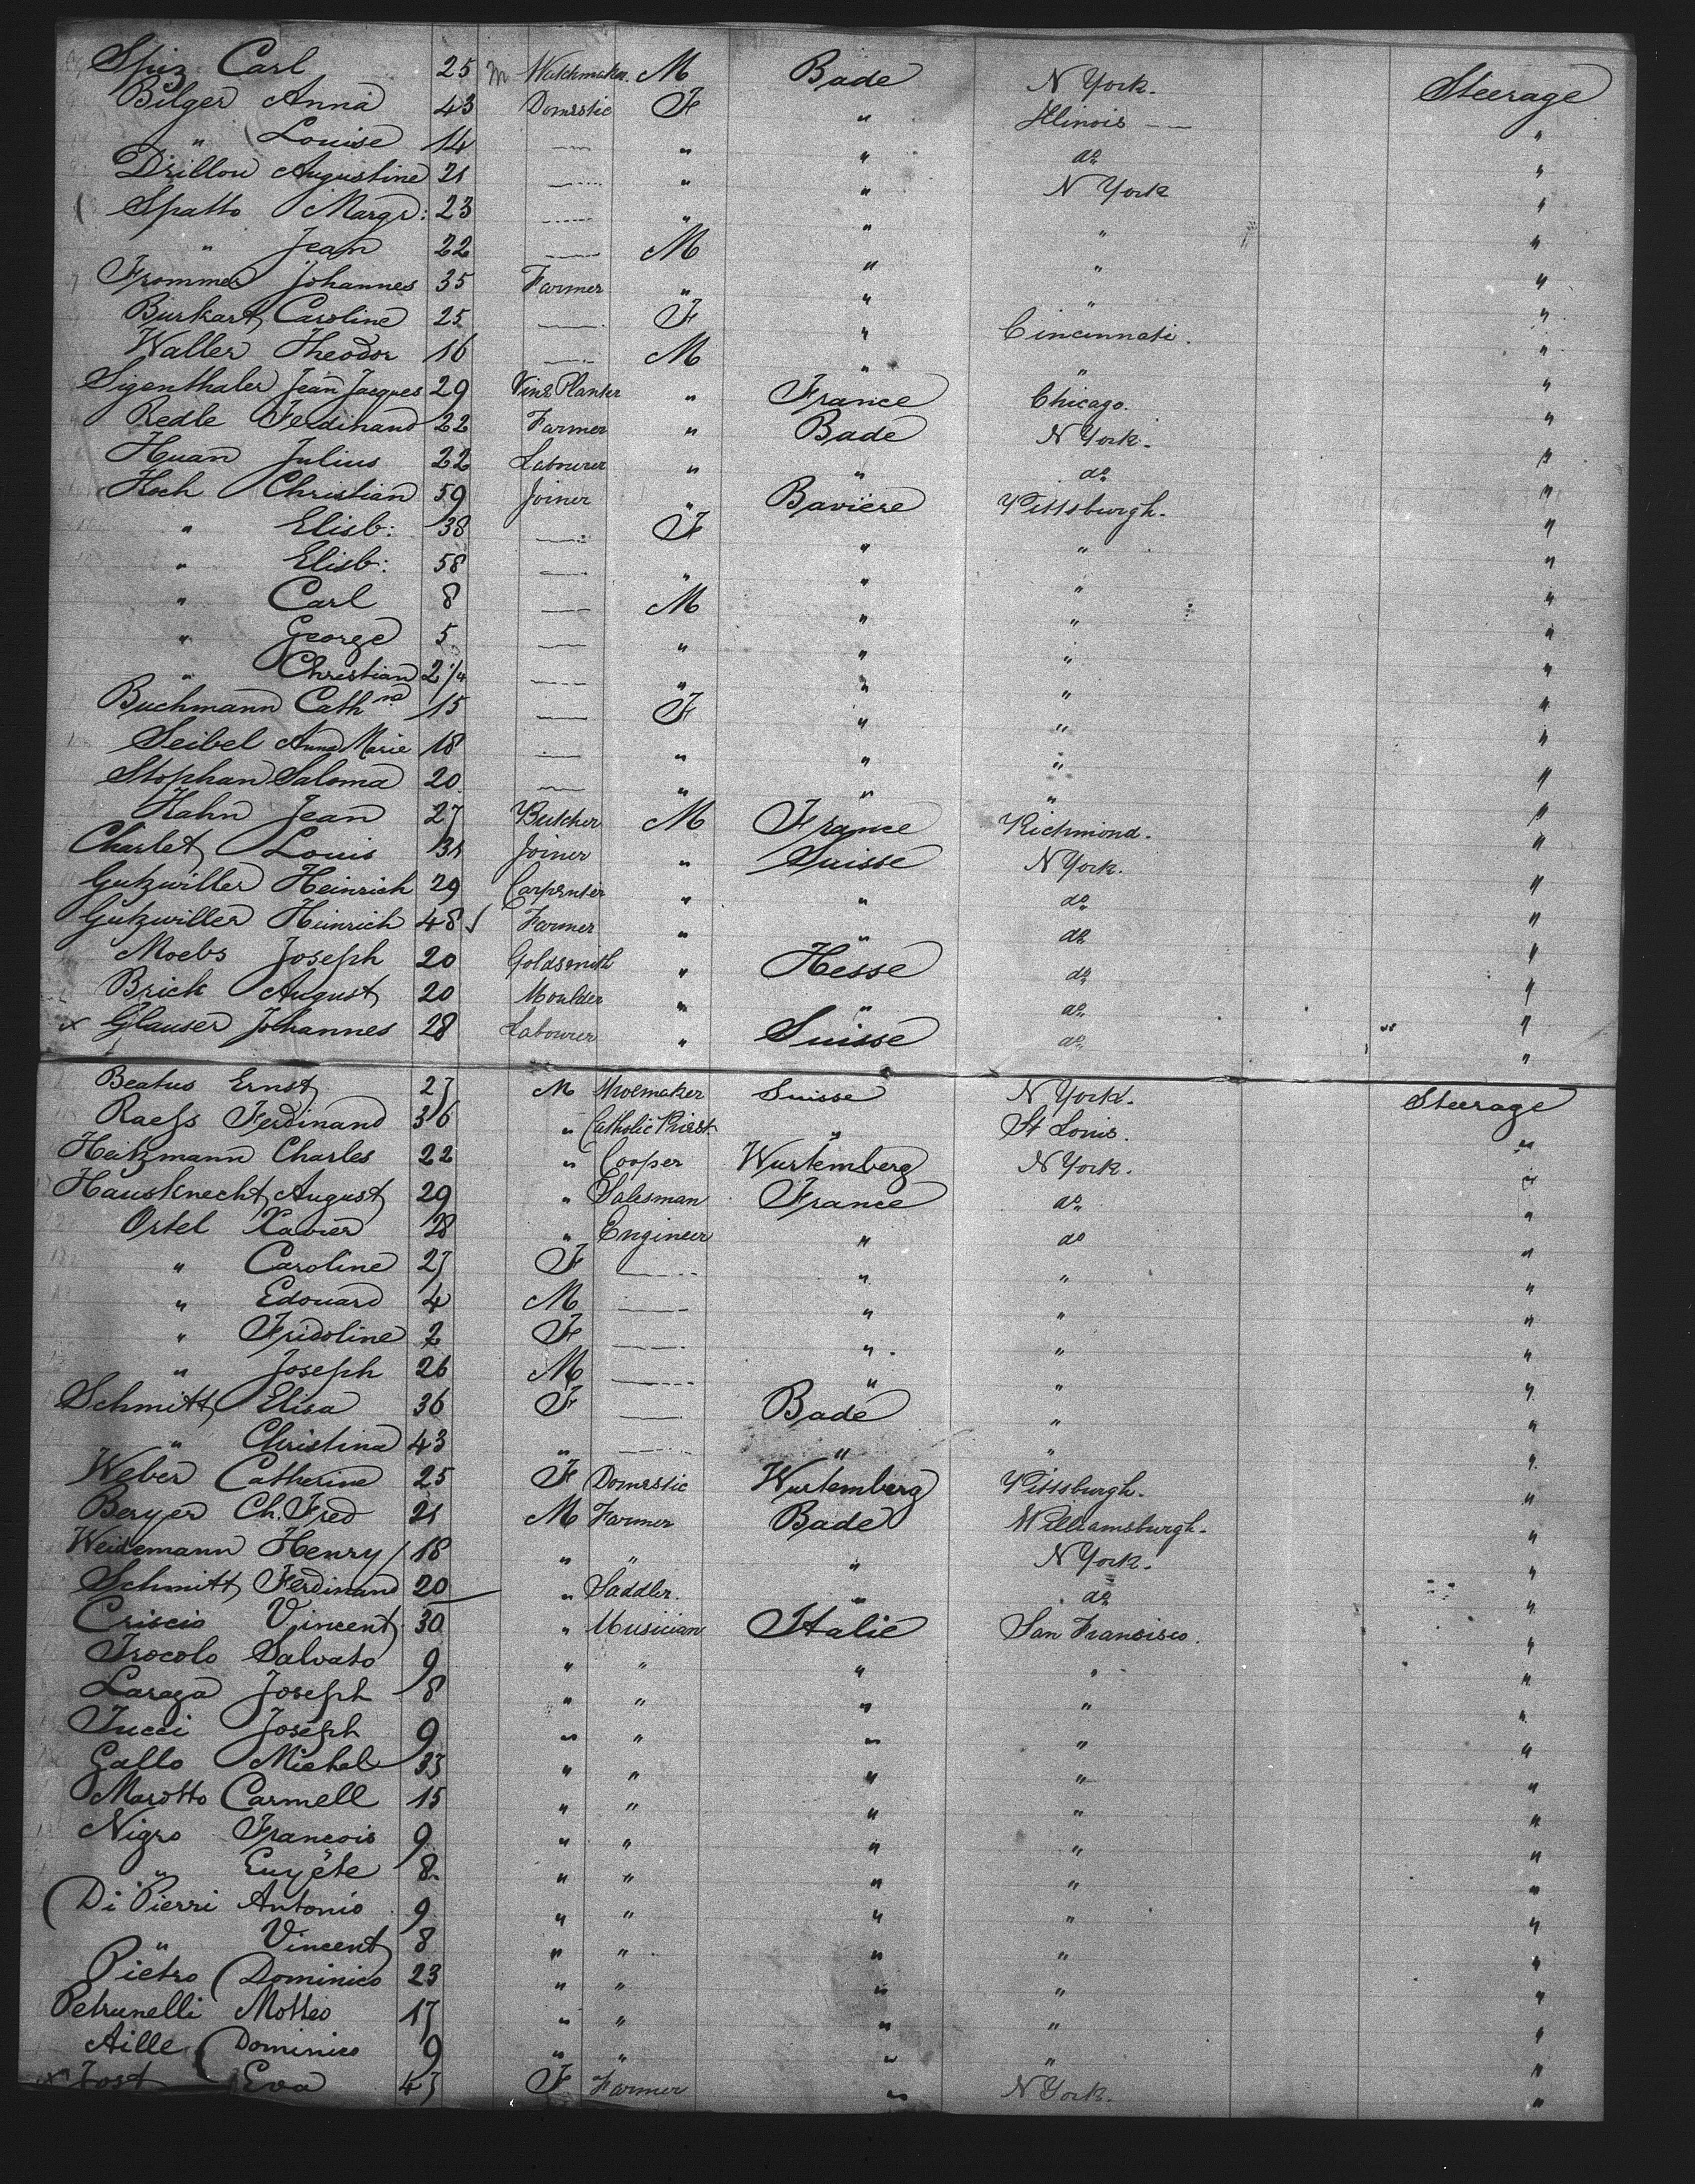 Spiz Carl 25 m Watchmaker. M Bade N York. Steerage
Bilger Anna 43 Domestic F " Illinois "
" Louise 14 — " " do "
Drillon Augustine 21 — " " N York "
Spatto Margr: 23 — " " " "
" Jean 22 — M " " "
Frommer Johannes 35 Farmer " " " "
Burkart Caroline 25 — F " Cincinnati. "
Waller Theodor 16 — M " " "
Sigenthaler Jean Jacques 29 Vine Planter " France Chicago. "
Redle Ferdinand 22 Farmer " Bade N York. "
Huan Julius 22 Labourer " " do "
Hoch Christian 59 Joiner " Baviere Pittsburgh. "
" Elisb: 38 — F " " "
" Elisb: 58 — " " " "
" Carl 8 — M " " "
" George 5 — " " " "
" Christian 2 1/4 — " " " "
Buchmann Cathna 15 — F " " "
Seibel Anna Marie 18 — " " " "
Stophan Saloma 20 — " " " "
Hahn Jean 27 Butcher M France Richmond. "
Charlet Louis 31 Joiner " Suisse N York. "
Gutzwiller Heinrich 29 Carpenter " " do "
Gutzwiller Heinrich 48 Farmer " " do "
Moebs Joseph 20 Goldsmith " Hesse do "
Brick August 20 Moulder " " do "
x Glauser Johannes 28 Labourer " Suisse do "
Beatus Ernst 27 M Shoemaker Suisse N York. Steerage
Raess Ferdinand 36 " Catholic Priest " St Louis. "
Heitzmann Charles 22 " Cooper Wurtemberg N York. "
Hausknecht August 29 " Salesman France do "
Ortel Xavier 28 " Engineer " do "
" Caroline 27 F — " " "
" Edouard 4 M — " " "
" Fridoline 2 F — " " "
" Joseph 26 M — " " "
Schmitt Elisa 36 F — Bade " "
" Christina 43 " — " " "
Weber Catherine 25 F Domestic Wurtemberg Pittsburgh. "
Beryer Ch. Fred 21 M Farmer Bade Williamsburgh. "
Weidemann Henry 18 " " " N York. "
Schmitt Ferdinand 20 " Saddler. " do "
Criscio Vincent 30 " Musician Italie San Francisco. "
Trocolo Salvato 9 " " " " "
Laraga Joseph 8 " " " " "
Tucci Joseph 9 " " " " "
Gallo Michel 33 " " " " "
Marotto Carmell 15 " " " " "
Nigro Francois 9 " " " " "
" 8 " " " " "
Di Pierri Antonio 9 " " " " "
" Vincent 8 " " " " "
Pietro Dominico 23 " " " " "
Petrunelli Motteo 17 " " " " "
Aille Dominico 9 " " " " "
x Jost Eva 47 F Farmer " N York. "